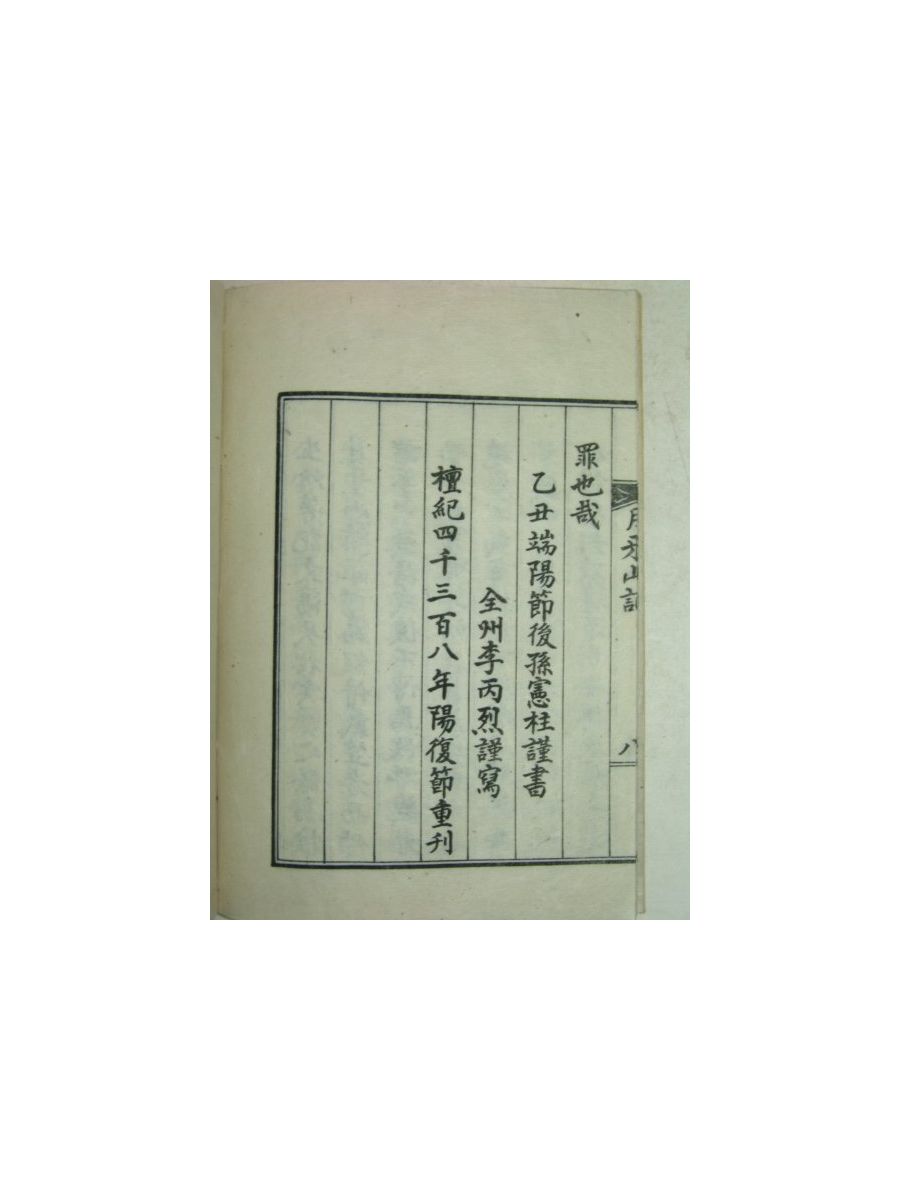 月牙山記
八
罪也哉
乙丑端陽節後孫憲柱謹書
全州李丙烈謹寫
檀紀四千三百八年陽復節重刊